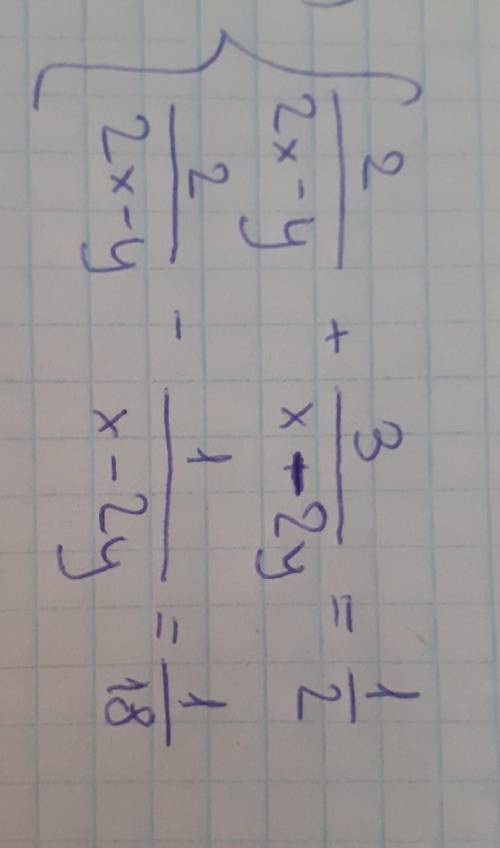 { 2/(2x-y) + 3/(x-2y) = 1/2
2/(2x-y) - 1/(x-2y) = 1/18